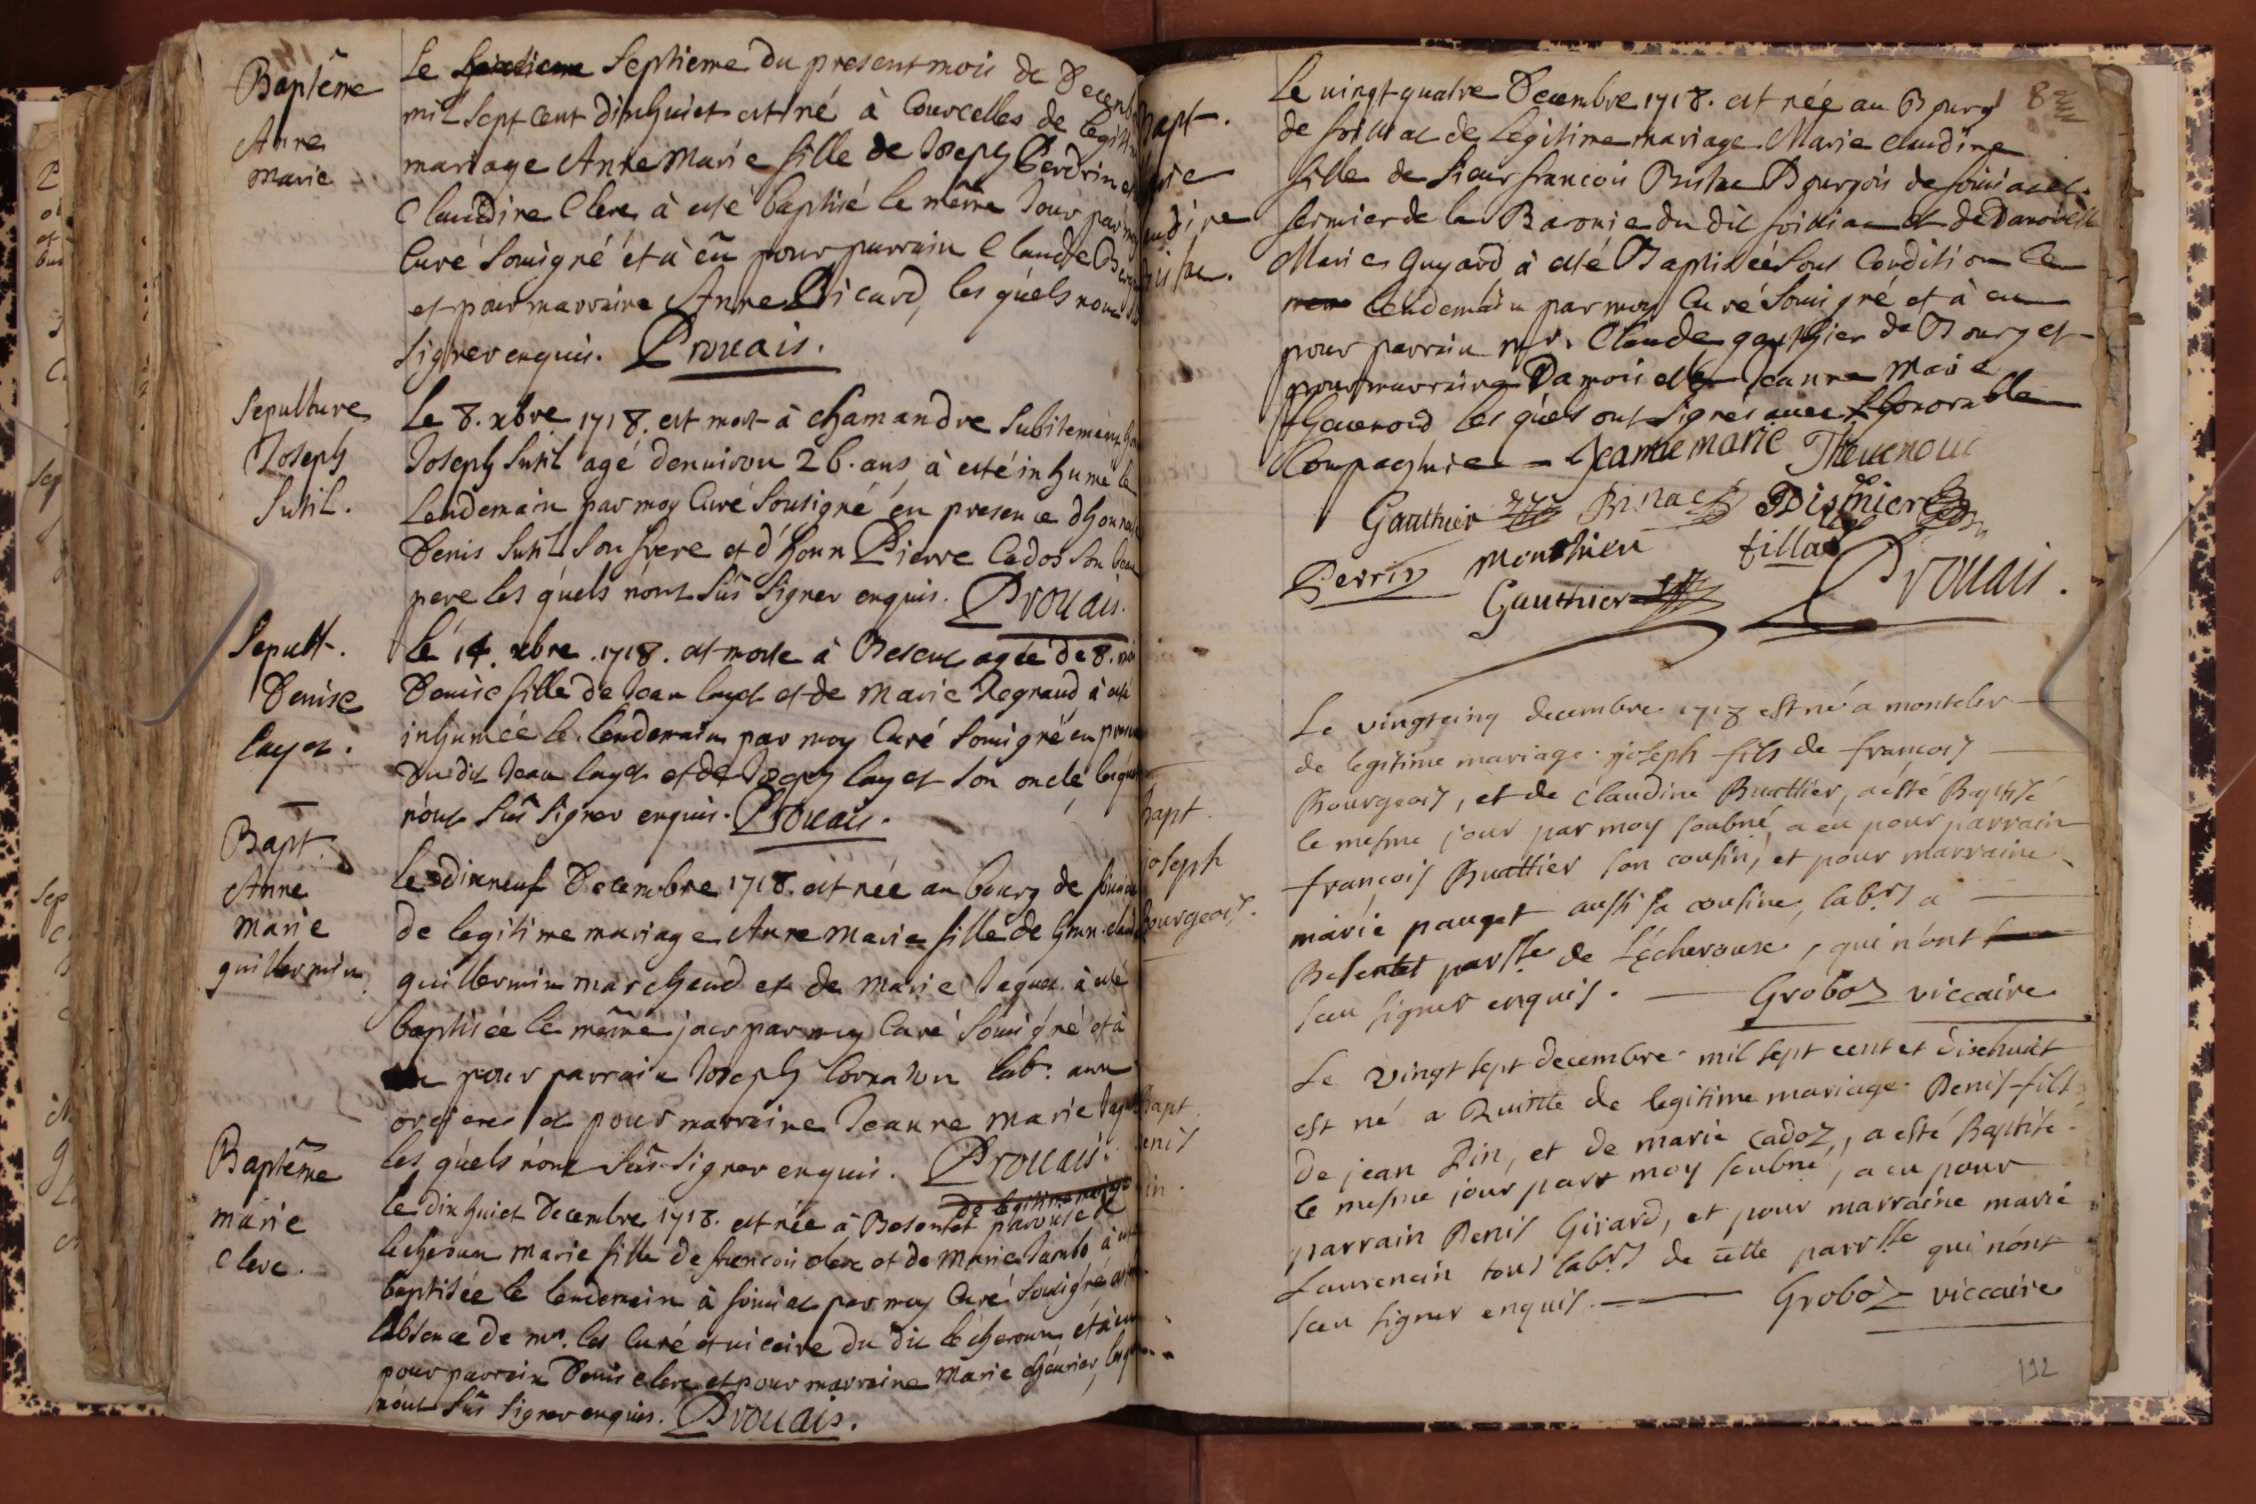 Baptême
Anne
marie
Le Septieme du present mois de Decemb
mil Sept cent dixhuict est né à Courcelles de legitim
mariage Anne Marie fille de Joseph Perdrin et
Claudine Clere à esté baptisé le même Jour par moy
Curé Sousigné et à eû pour parrain Claude
et pour marraine Anne Bicard, les quels nont
signer enquis. Prouais.
Sepulture
Joseph
Sutil.
Le 8. xbre 1718. est mort à chamandre Subitement
Joseph Sutil agé denuiron 26. ans à esté inhumé le
Lendemain par moy Curé Sousigné en presence dhonn
Denis Sutil Son frere et d'honn Pierre Cados Son beau
pere les quels n'ont Sûs Signer enquis. Prouais.
Sepult.
Denise
layet.
Le 14. xbre .1718. est morte à Beseut agée de 8.
Denise fille de Jean layet et de Marie Regnaud à esté
inhumée le lendemain par moy Curé Sousigné en
Du dit Jean layet et de Joseph layet Son oncle
n'ont Sûs Signer enquis. Prouais.
Bapt.
Anne
marie
guillermin
le dixneuf Decembre 1718. est née au bourg de
de legitime mariage Anne Marie fille de
guillermin marchand et de Marie Jaquet à esté
baptisée le même jour par moy Curé Sousigné et à
pour parrain Joseph lab.r aux
orcieres et pour marraine Jeanne Marie
les quels n'ont Sûs Signer enquis. Prouais.
Baptême
marie
clere.
de legitime mariage
le dixhuict Decembre 1718. est née à Besentet paroisse de
lecheroux Marie fille de francois clere et de Marie à
baptisée le lendemain à par moy Curé Sousigné en
labsence de mrs. les Curé et vicaire du dit lécheroux et à eu
pour parrain Denis clere et pour marraine Marie cheurier,
n'ont Sûs Signer enquis. Prouais.
Bapt.
Le uingt-quatre Decembre 1718. est née au Bourg
de de legitime mariage Marie Claudine
fille de Sieur francois Bourgois de
fermier de la Baronie du dit et de Damoiselle
Marie Guyard à esté Baptisée Sous Condition Le
lendemain par moy Curé Sousigné et à eu
pour parrain mr. Claude gauthier de Bourg et
pour marraine Damoiselle Jeanne Marie
les quels ont Signés auec Lhonorable
Compaghie = Jeanne marie Theuenoud
Gauthier
Perrin Monthieu
Gauthier Prouais.
Bapt.
joseph
Bourgeois.
Le vingtcinq decembre 1718 est né a monteler
de legitime mariage joseph fils de françois
Bourgeois, et de claudine Buattier, a esté Baptisé
le mesme jour par moy soubné, a eu pour parrain
françois Buattier son cousin, et pour marraine
marie pauget aussi sa cousine, labrs a
Besentet parsse de Lécherouse, qui n'ont
sceu signer enquis. Groboz viccaire
Bapt.
Denis
Pin.
Le vingt sept decembre mil sept cent et dixhuict
est né a de legitime mariage Denis fils
de jean Pin, et de marie cadoz, a esté Baptisé
le mesme jour par moy soubné, a eu pour
parrain Denis Girard, et pour marraine marie
Laurencin tous labrs de cette parrsse qui n'ont
sceu signer enquis. Groboz viccaire
132